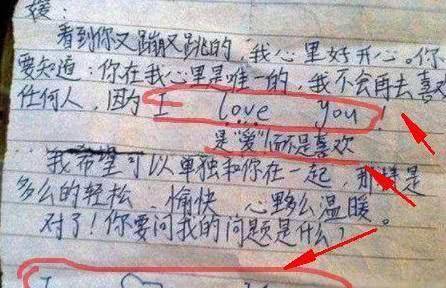 媛:
看到你又蹦又跳的,我心里好开心。你
要知道:你在我心里是唯一的,我不会再去喜欢
任何人,因为 I love you!
是"爱"而不是喜欢
我希望可以单独和你在一起,那将是
多么的轻松、愉快、心野么温暖。
对了!你要问我的问题是什么?
I